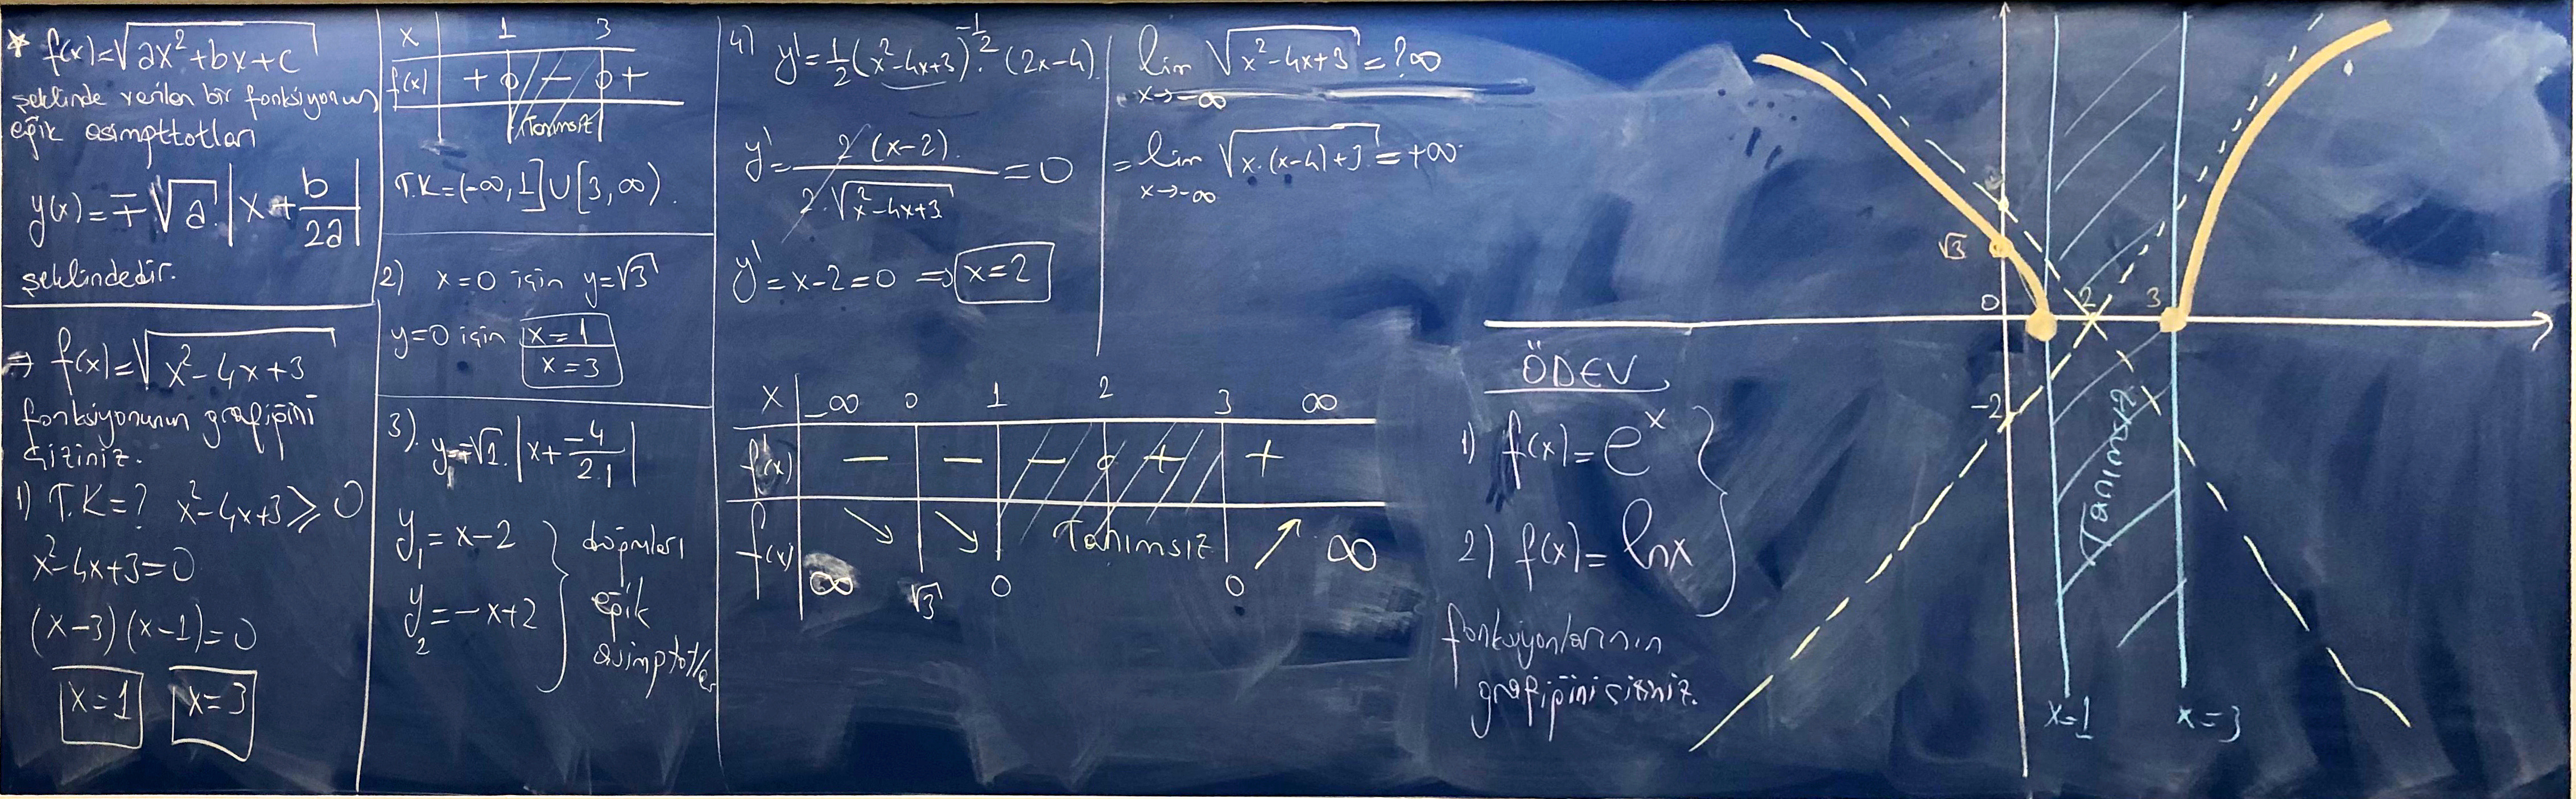 * f(x)=√(ax²+bx+c)
şeklinde verilen bir fonksiyonun
eğik asimpttotları
y(x)=∓√a.|x+b/2a|
şeklindedir.
⇒ f(x)=√(x²-4x+3)
fonksiyonunun grafiğini
çiziniz.
1) T.K=? x²-4x+3≥0
x²-4x+3=0
(x-3)(x-1)=0
x=1 x=3
x 1 3
f(x) + 0 - 0 +
Tanımsız
T.K=(-∞,1]∪[3,∞).
2) x=0 için y=√3
y=0 için x=1
x=3
3). y=∓√1.|x+-4/2.1|
y₁=x-2
y₂=-x+2
doğruları
eğik
asimptotlar
4) y'=1/2(x²-4x+3)^-1/2.(2x-4)
y'=2(x-2)/2.√(x²-4x+3)=0
y'=x-2=0 ⇒ x=2
lim x→-∞ √(x²-4x+3)=?∞
=lim x→-∞ √(x.(x-4)+3)=+∞
x -∞ 0 1 2 3 ∞
f'(x) - - - 0 + +
f(x) ↘ ↘ Tanımsız ↗ ∞
∞ √3 0 0
ÖDEV
1) f(x)=e^x
2) f(x)=lnx
fonksiyonlarının
grafiğini çiziniz.
√3
0 2 3
-2
Tanımsız
x=1 x=3